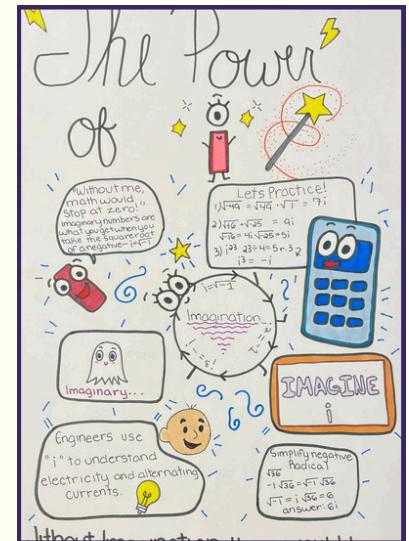 The Power
of
"Without me,
math would
stop at zero!"
imaginary numbers are
what you get when you
take the square root
of a negative- i=√-1
Lets Practice!
1) √-49 = √49 · √-1 = 7i
2) √-16 + √-25 = 9i
√-16 = 4i √-25 = 5i
3) i²³ 23÷4=5r.3
i³ = -i
i=√-1
Imagination
Imaginary...
IMAGINE
i
Engineers use
"i" to understand
electricity and alternating
currents.
Simplify negative
Radical
√36
-1√36=√-1 √36
√-1 = i √36=6
answer: 6i